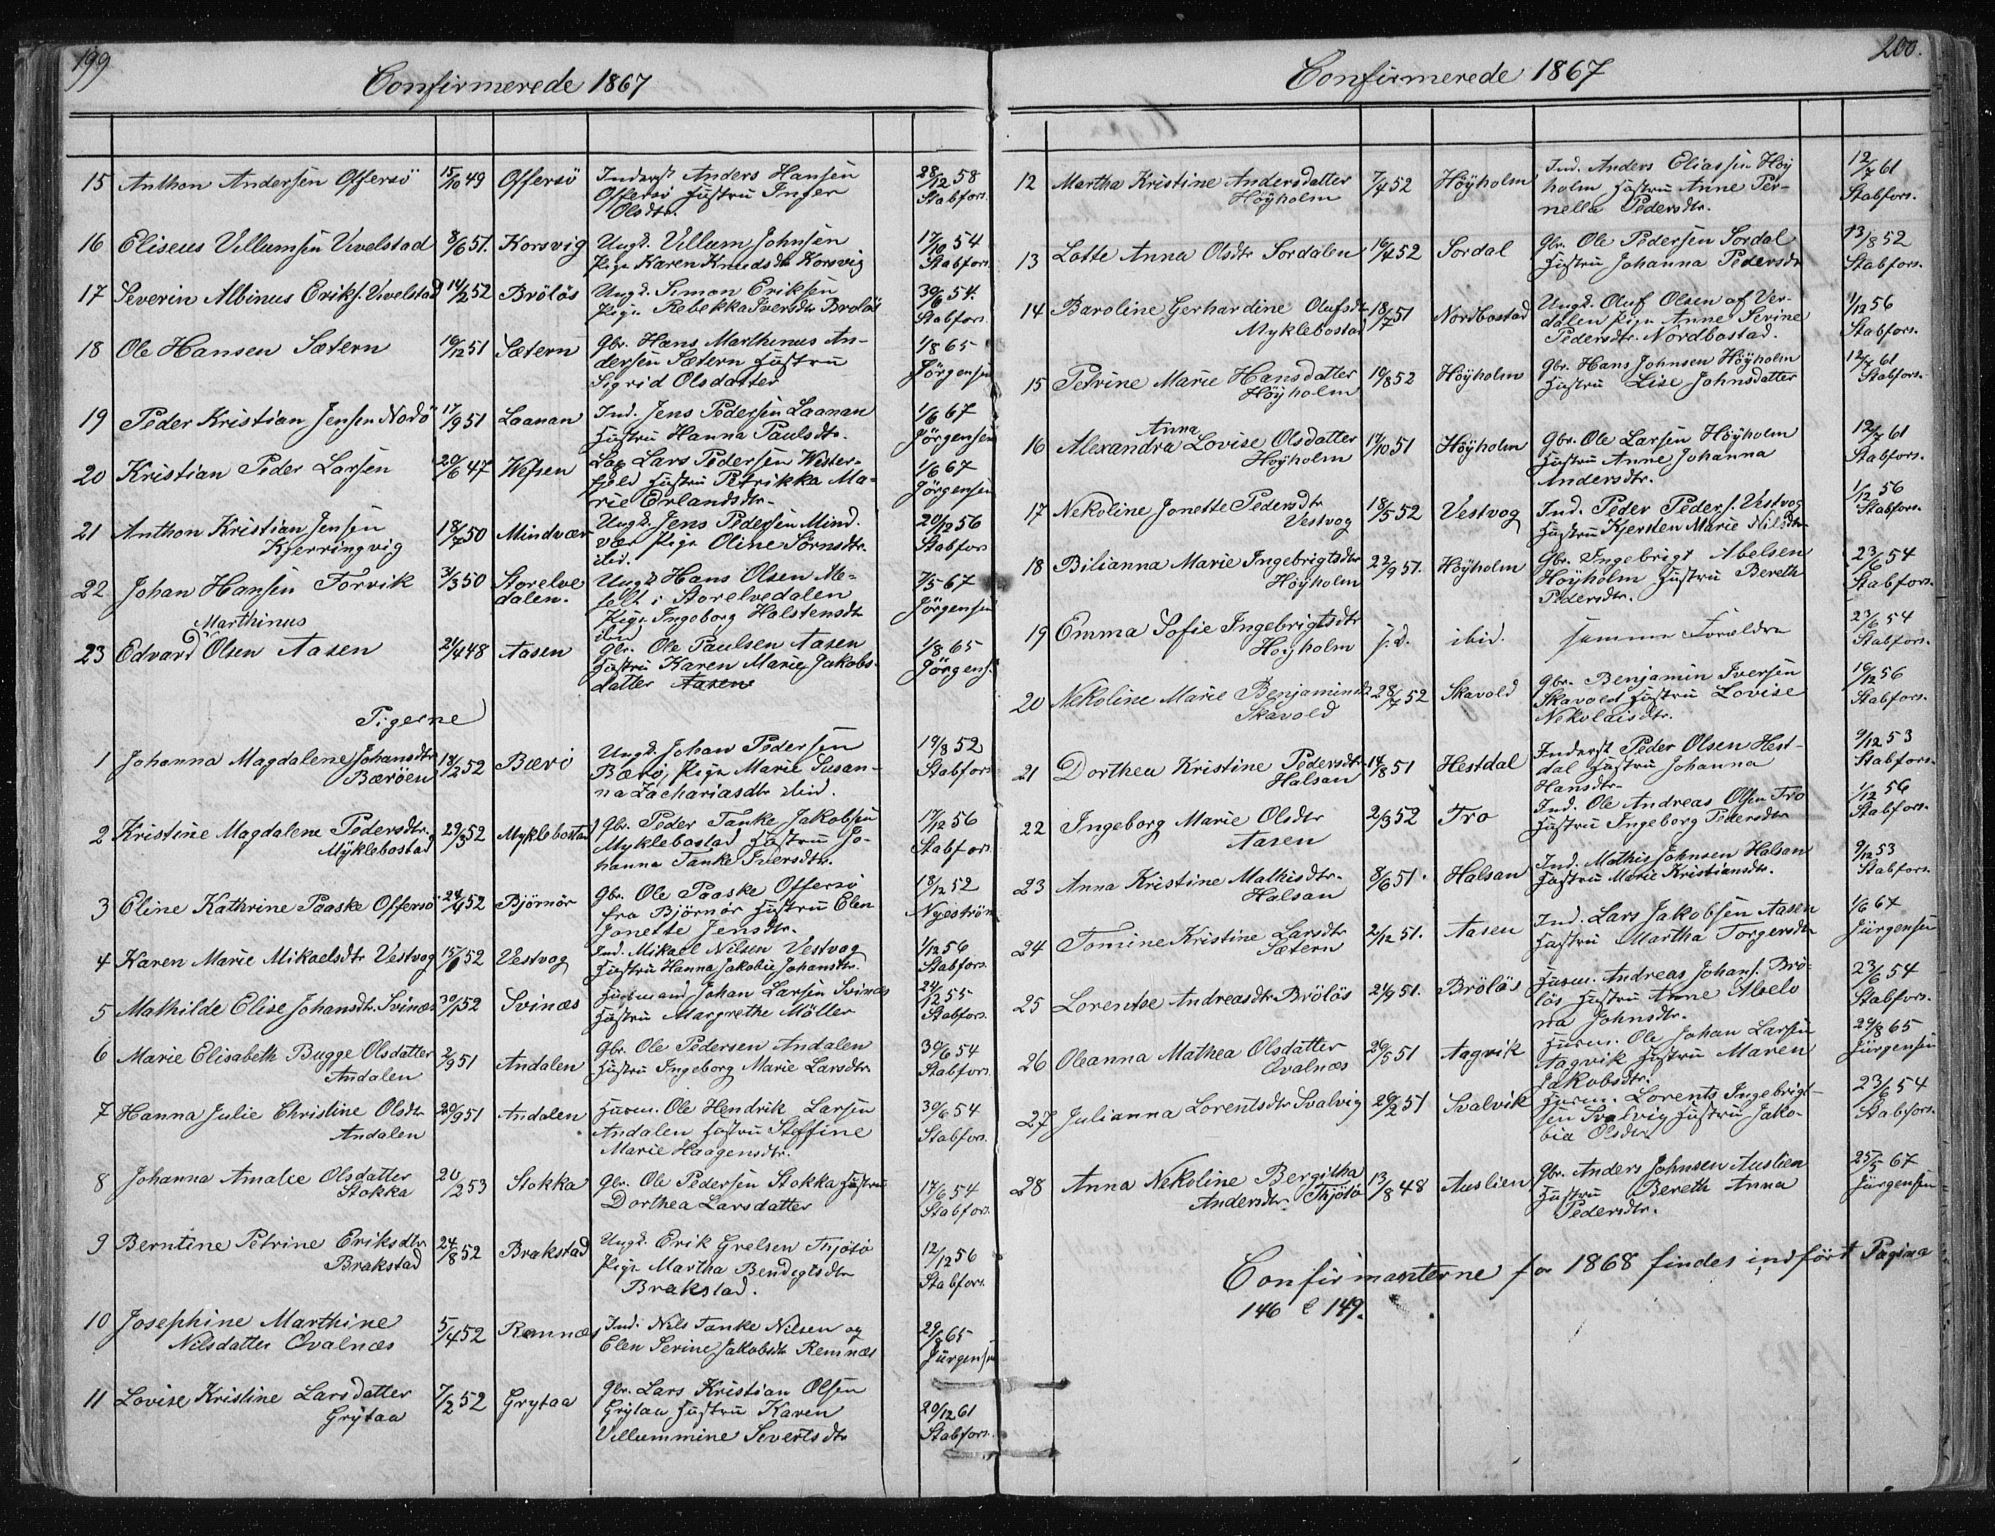 199
Confirmerede 1867
15 Anthon Andersen Offersö 15/10 49 Offersö Inderst Anders Hansen 28/12 58
Offersö Hustru Inger Stabfors.
Olsdtr.
16 Eliseus Villumsen Vivelstad 8/6 51. Korsvig Ungk. Villum Johnsen 17/10 54
Pige Karen Knudsdtr Korsvig Stabfors.
17 Severin Albinus Eriks. Vivelstad 14/2 52 Brölös Ungk. Simon Eriksen 30/6 54.
Pige Rebekka Iversdtr Brölös Stabfors.
18 Ole Hansen Sætern 16/12 51 Sætern Gbr. Hans Marthinus An- 1/8 65
dersen Sætern Hustru Jörgensen
Sigrid Olsdatter
19 Peder Kristian Jensen Nodö 17/9 51 Laanan Ind. Jens Pedersen Laanan 1/6 67
Hustru Hanna Paulsdtr. Jörgensen
20 Kristian Peder Larsen 20/6 47 Vefsen Lars Pedersen Wester- 1/6 67
fjeld Hustru Petrikka Ma- Jörgensen
rie Erlandsdtr.
21 Anthon Kristian Jensen 18/7 50 Mindvær Ungk. Jens Pedersen Mind. 20/12 56
Kjerringvig vær Pige Oline Sörnsdtr. Stabfors
ibid.
22 Johan Hansen Forvik 31/3 50 Storelve Ungk Hans Olsen 7/5 67
dalen. i Storelvedalen Jörgensen
Pige Ingeborg Halstensdtr
Marthinus ibid
23 Edvard Olsen Aasen 24/4 48 Aasen Gbr. Ole Paulsen Aasen 1/8 65
Hustru Karen Marie Jakobs- Jörgens.
datter Aasen
Pigerne
1 Johanna Magdalene Johansdtr 18/2 52 Bærö Ungk. Johan Pedersen 19/8 52
Bæröen Bærö, Pige Marie Susan- Stabfors
na Zachariasdtr ibid.
2 Kristine Magdalene Pedersdtr. 29/3 52 Myklebostad Gbr. Peder Tanke Jakobsen 17/12 56
Myklebostad Myklebostad Hustru Jo- Stabfors
hanna Tanke Iversdtr.
3 Eline Kathrine Paaske Offersö 24/4 52 Björnör Gbr. Ole Paaske Offersö 18/12 52
fra Björnör Hustru Elen Nyeström
Jonette Jensdtr.
4 Karen Marie Mikaelsdtr Vestvog 15/1 52 Vestvog Ind. Mikael Nilsen Vestvog 1/12 56
Hustru Hanna Jakobie Johansdtr. Stabfors.
5 Mathilde Elise Johansdtr. Svinæs 30/1 52 Svinæs Huusmand Johan Larsen Svinæs 24/12 55
Hustru Margrethe Möller Stabfors.
6 Marie Elisabeth Bugge Olsdatter 2/9 51 Andalen Gbr. Ole Pedersen Andalen 30/6 54
Andalen Hustru Ingeborg Marie Larsdtr. Stabfors.
7 Hanna Julie Christine Olsdtr 20/9 51 Andalen Huusm. Ole Hendrik Larsen 30/6 54
Andalen Andalen Hustru Steffine Stabfors.
Marie Haagensdtr.
8 Johanna Amalie Olsdatter 20/2 53 Stokka Gbr. Ole Pedersen Stokka Hustru 17/6 54
Stokka Dorthea Larsdatter Stabfors.
9 Berntine Petrine Eriksdtr 24/8 52 Brakstad Ungk. Erik Grelsen Thjötö 12/12 56
Brakstad Pige Martha Bendigtsdtr Stabfors.
Brakstad.
10 Josephine Marthine 5/4 52 Remnæs Ind. Nils Tanke Nilsen og 29/8 65
Nilsdatter Qvalnæs Elen Serine Jakobsdtr Remnæs Jürgensen
11 Lovise Kristine Larsdatter 7/2 52 Grytaa Gbr. Lars Kristian Olsen 20/12 61
Grytaa Grytaa Hustru Karen Stabfors.
Villummine Severtsdtr
200.
Confirmerede 1867
12 Martha Kristine Andersdatter 7/4 52 Höyholm Ind. Anders Eliassen Höy 12/7 61
Höyholm holm, Hustru Anne Per- Stabfors.
nella Pedersdtr.
13 Lotte Anna Olsdtr Sordalen 16/4 52 Sordal Gbr. Ole Pedersen Sordal 13/8 52
Hustru Johanna Pedersdtr Stabfors.
14 Baroline Gerhardine Olufsdtr 18/7 51 Nordbostad Ungk. Oluf Olsen af Ver- 1/12 56
Myklebostad dalen Pige Anne Serine Stabfors.
Pedersdtr. Nordbostad.
15 Petrine Marie Hansdatter 19/8 52 Höyholm Gbr. Hans Johnsen Höyholm 12/7 61
Höyholm Hustru Lise Johnsdatter Stabfors.
Anna
16 Alexandra Lovise Olsdatter 17/10 51 Höyholm Gbr. Ole Larsen Höyholm 12/7 61
Höyholm Hustru Anne Johanna Stabfors.
Andersdtr.
17 Nekoline Jonette Pedersdtr 18/5 52 Vestvog Ind. Peder Peders. Vestvog 1/12 56
Vestvog Hustru Kjersten Marie Nilsdtr. Stabfors.
18 Bilianna Marie Ingebrigtsdtr 22/9 51. Höyholm Gbr. Ingebrigt Abelsen 23/6 54
Höyholm Höyholm, Hustru Bereth Stabfors.
Pedersdtr.
19 Emma Sofie Ingebrigtsdtr s.d. ibid. samme Forældre 23/6 54
Höyholm Stabfors.
20 Nekoline Marie Benjaminsdtr 28/7 52 Skavold Gbr. Benjamin Iversen 16/12 56
Skavold Skavold Hustru Lovise Stabfors.
Nekolaisdtr.
21 Dorthea Kristine Pedersdtr 14/8 51 Hestdal Inderst Peder Olsen Hest- 9/12 53
Halsan dal Hustru Johanna Stabfors.
Hansdtr.
22 Ingeborg Marie Olsdtr 2/3 52 Tro Ind. Ole Andreas Olsen Tro 1/12 56
Aasen Hustru Ingeborg Pedersdtr Stabfors.
23 Anna Kristine Mathisdtr. 8/6 51. Halsan Ind. Mathis Johnsen Halsan 9/12 53
Halsan Hustru Marie Kristiansdtr. Stabfors.
24 Tomine Kristine Larsdtr 2/12 51. Aasen Ind. Lars Jakobsen Aasen 1/6 67
Sætern Hustru Martha Torgersdtr Jürgensen
25 Lorentse Andreasdtr Brölös 24/9 51. Brölös Huusm. Andreas Johans. Brö- 23/6 54
lös Hustru Anne Abelo Stabfors.
na Johnsdtr.
26 Oleanna Mathea Olsdatter 26/5 51 Aagvik Huusm. Ole Johan Larsen 29/8 65
Qvalnæs Aagvik Hustru Maren Jürgensen
Jakobsdtr.
27 Julianna Lorentsdtr Svalvig 26/2 51 Svalvik Huusm. Lorents Ingebrigt- 23/6 54
sen Svalvig Hustru Jako- Stabfors.
bia Olsdtr.
28 Anna Nekoline Bergitha 13/8 48 Auslien Gbr. Anders Johnsen Auslien 25/5 67
Andersdtr. Thjötö Hustru Bereth Anna Jürgensen
Pedersdtr.
Confirmanterne for 1868 findes indfört Pagina
146 & 149.